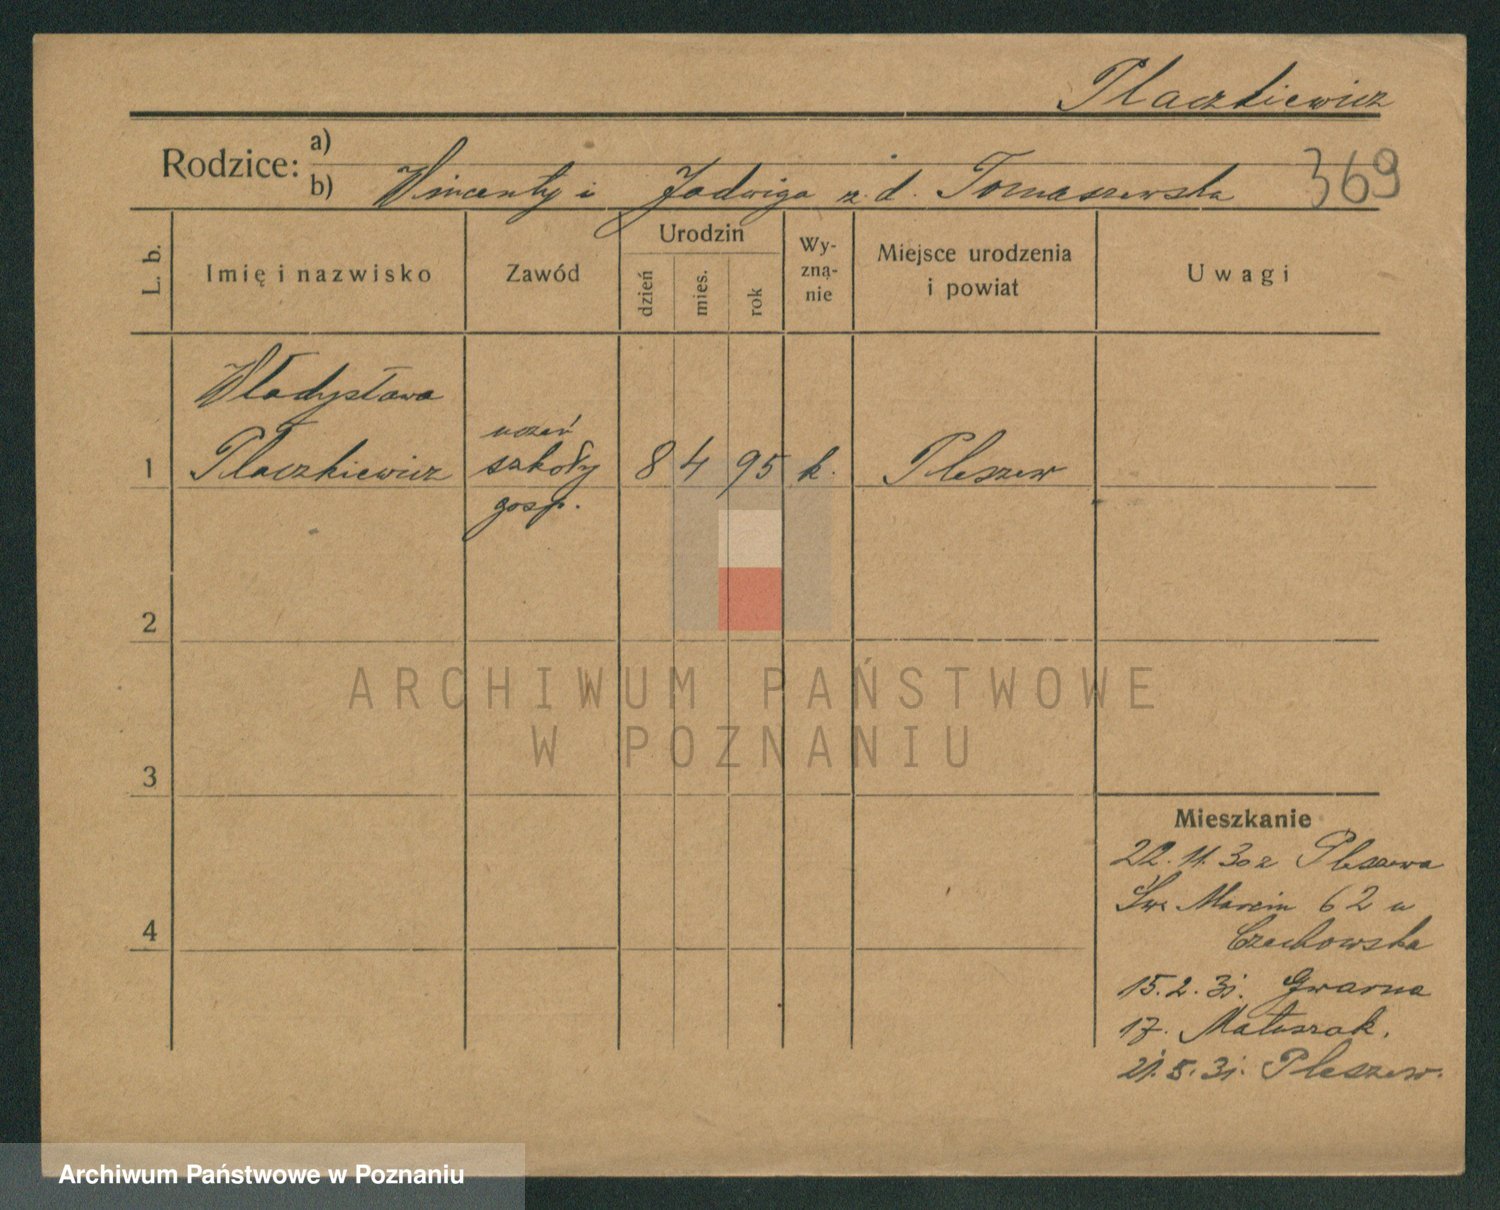 Płaczkiewicz
Rodzice: a)
b) Wincenty i Jadwiga z d. Tomaszewska 369
L. b. Imię i nazwisko Zawód Urodzin dzień mies. rok Wy-zna-nie Miejsce urodzenia i powiat Uwagi
Władysława
uczeń
1 Płaczkiewicz szkoły 8 4 95 k. Pleszew
gosp.
2
ARCHIWUM PAŃSTWOWE
W POZNANIU
3
Mieszkanie
22.11.30 z Pleszewa
Św. Marcin 62 u
Czechowska
4
15.2.31. Gwarna
17. Matuszak.
21.5.31. Pleszew.
Archiwum Państwowe w Poznaniu